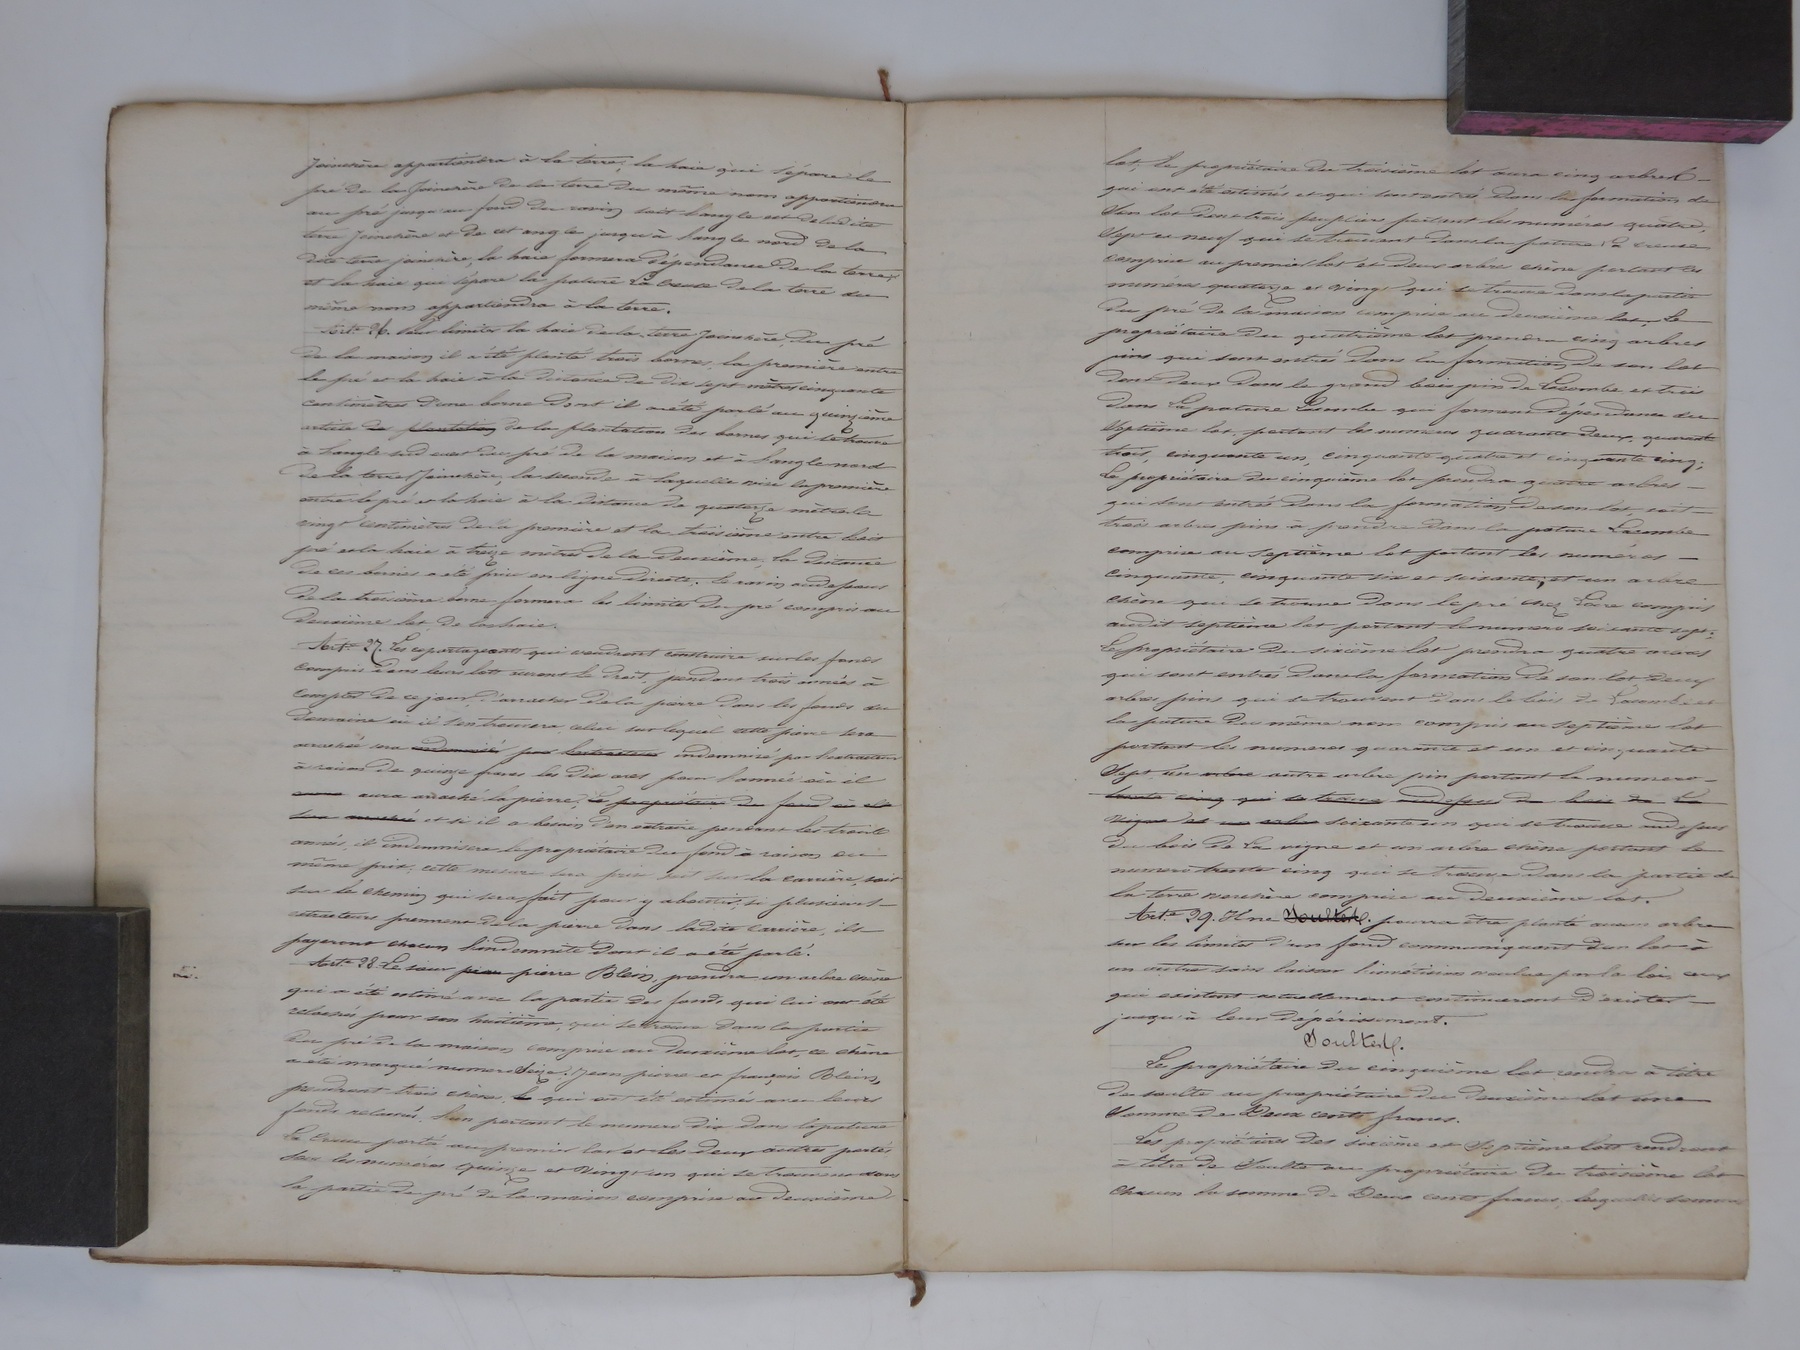 Joinchère appartiendra à la terre, la haie qui sépare le
pré de la Joinchère de la terre du même nom appartiendra
au pré jusqu'au fond du ravin soit l'angle est de ladite
terre Joinchère et de cet angle jusqu'à l'angle nord de la
dite terre joinchère, la haie formera dépendance de la terre,
et la haie qui sépare la pature La Creuse de la terre du
même nom appartiendra à la terre.
Art.e 26. Pour limiter la haie de la terre Joinchère du pré
de la maison il a été planté trois bornes, la première entre
le pré et la haie à la distance de dix sept mètres cinquante
centimètres d'une borne dont il a été parlé au quinzième
article de plantation de la plantation des bornes qui se trouve
à l'angle sud ouest du pré de la maison et à l'angle nord
de la terre Joinchère, la seconde à laquelle vise la première
entre le pré et la haie à la distance de quatorze mètres
vingt centimètres de la première et la troisième entre ledit
pré et la haie à treize mètres de la deuxième, la distance
de ces bornes a été prise en ligne directe. le ravin au dessous
de la troisième borne formera les limites du pré compris au
deuxième lot de la haie.
Art.e 27. Les copartageants qui voudront construire sur les fonds
compris dans leurs lots auront le droit, pendant trois années à
compter de ce jour, d'arracher de la pierre dans les fonds du
domaine où il s'en trouvera, celui sur lequel cette pierre sera
arrachée sera indemnisé par l'extracteur indemnisé par l'extracteur
à raison de quinze francs les dix ares pour l'année où il
aura arraché la pierre, le propriétaire du fond où elle
sera arrachée et si il a besoin d'en extraire pendant les trois
années, il indemnisera le propriétaire du fond à raison du
même prix, cette mesure sera prise soit sur la carrière, soit
sur le chemin qui sera fait pour y aboutir, si plusieurs
extracteurs prennent de la pierre dans ladite carrière, ils
payeront chacun l'indemnité dont il a été parlé.
Art.e 28. Le sieur pierre Blein, prendra un arbre chêne
qui a été estimé avec la partie des fonds qui lui ont été
relaissés pour son huitième, qui se trouve dans la partie
du pré de la maison comprise au deuxième lot, ce chêne
a été marqué numéro seize. Jean pierre et françois Blein,
prendront trois chênes, qui ont été estimés avec leurs
fonds relaissés. L'un portant le numéro dix dans la pature
La Creuse porté au premier lot et les deux autres portés
sous les numéros quinze et vingt un qui se trouvent dans
la partie de pré de la maison comprise au deuxième
lot, le propriétaire du troisième lot aura cinq arbres
qui ont été estimés et qui sont entrés dans la formation de
son lot dont trois peupliers portant les numéros quatre,
sept et neuf qui se trouvent dans la pature La Creuse
comprise au premier lot et deux arbres chêne portant les
numéros quatorze et vingt qui se trouve dans la partie
du pré de la maison comprise au deuxième lot. Le
propriétaire du quatrième lot prendra cinq arbres
pins qui sont entrés dans la formation de son lot
dont deux dans le grand bois pin de Lacombe et trois
dans la pature Lacombe qui forment dépendance du
septième lot, portant les numéros quarante deux, quarante
trois, cinquante un, cinquante quatre et cinquante cinq;
Le propriétaire du cinquième lot prendra quatre arbres
qui sont entrés dans la formation de son lot, soit
trois arbres pins à prendre dans la pature Lacombe
comprise au septième lot portant les numéros
cinquante, cinquante six et soixante, et un arbre
chêne qui se trouve dans le pré chez Loire compris
audit septième lot portant le numéro soixante sept.
Le propriétaire du sixième lot prendra quatre arbres
qui sont entrés dans la formation de son lot deux
arbres pins qui se trouvent dans le bois de Lacombe et
la pature du même nom compris au septième lot
portant les numéros quarante et un et cinquante
sept un arbre autre arbre pin portant le numéro
trente cinq qui se trouve au dessous du bois de la
vigne et un arbre soixante un qui se trouve au dessous
du bois de la vigne et un arbre chêne portant le
numéro trente cinq qui se trouve dans la partie de
la terre comprise au deuxième lot.
Art.e 29. Il ne Soultes. pourra être planté aucun arbre
sur les limites d'un fond communiquant d'un lot à
un autre sans laisser l'intérieur voulue par la loi, ceux
qui existent actuellement continueront d'exister
jusqu'à leur dépérissement.
Soultes.
Le propriétaire du cinquième lot rendra à titre
de soulte au propriétaire du deuxième lot une
somme de Deux cents francs.
Les propriétaires des sixième et septième lots rendront
à titre de soulte au propriétaire du troisième lot
chacun la somme de Deux cents francs, lesquelles sommes